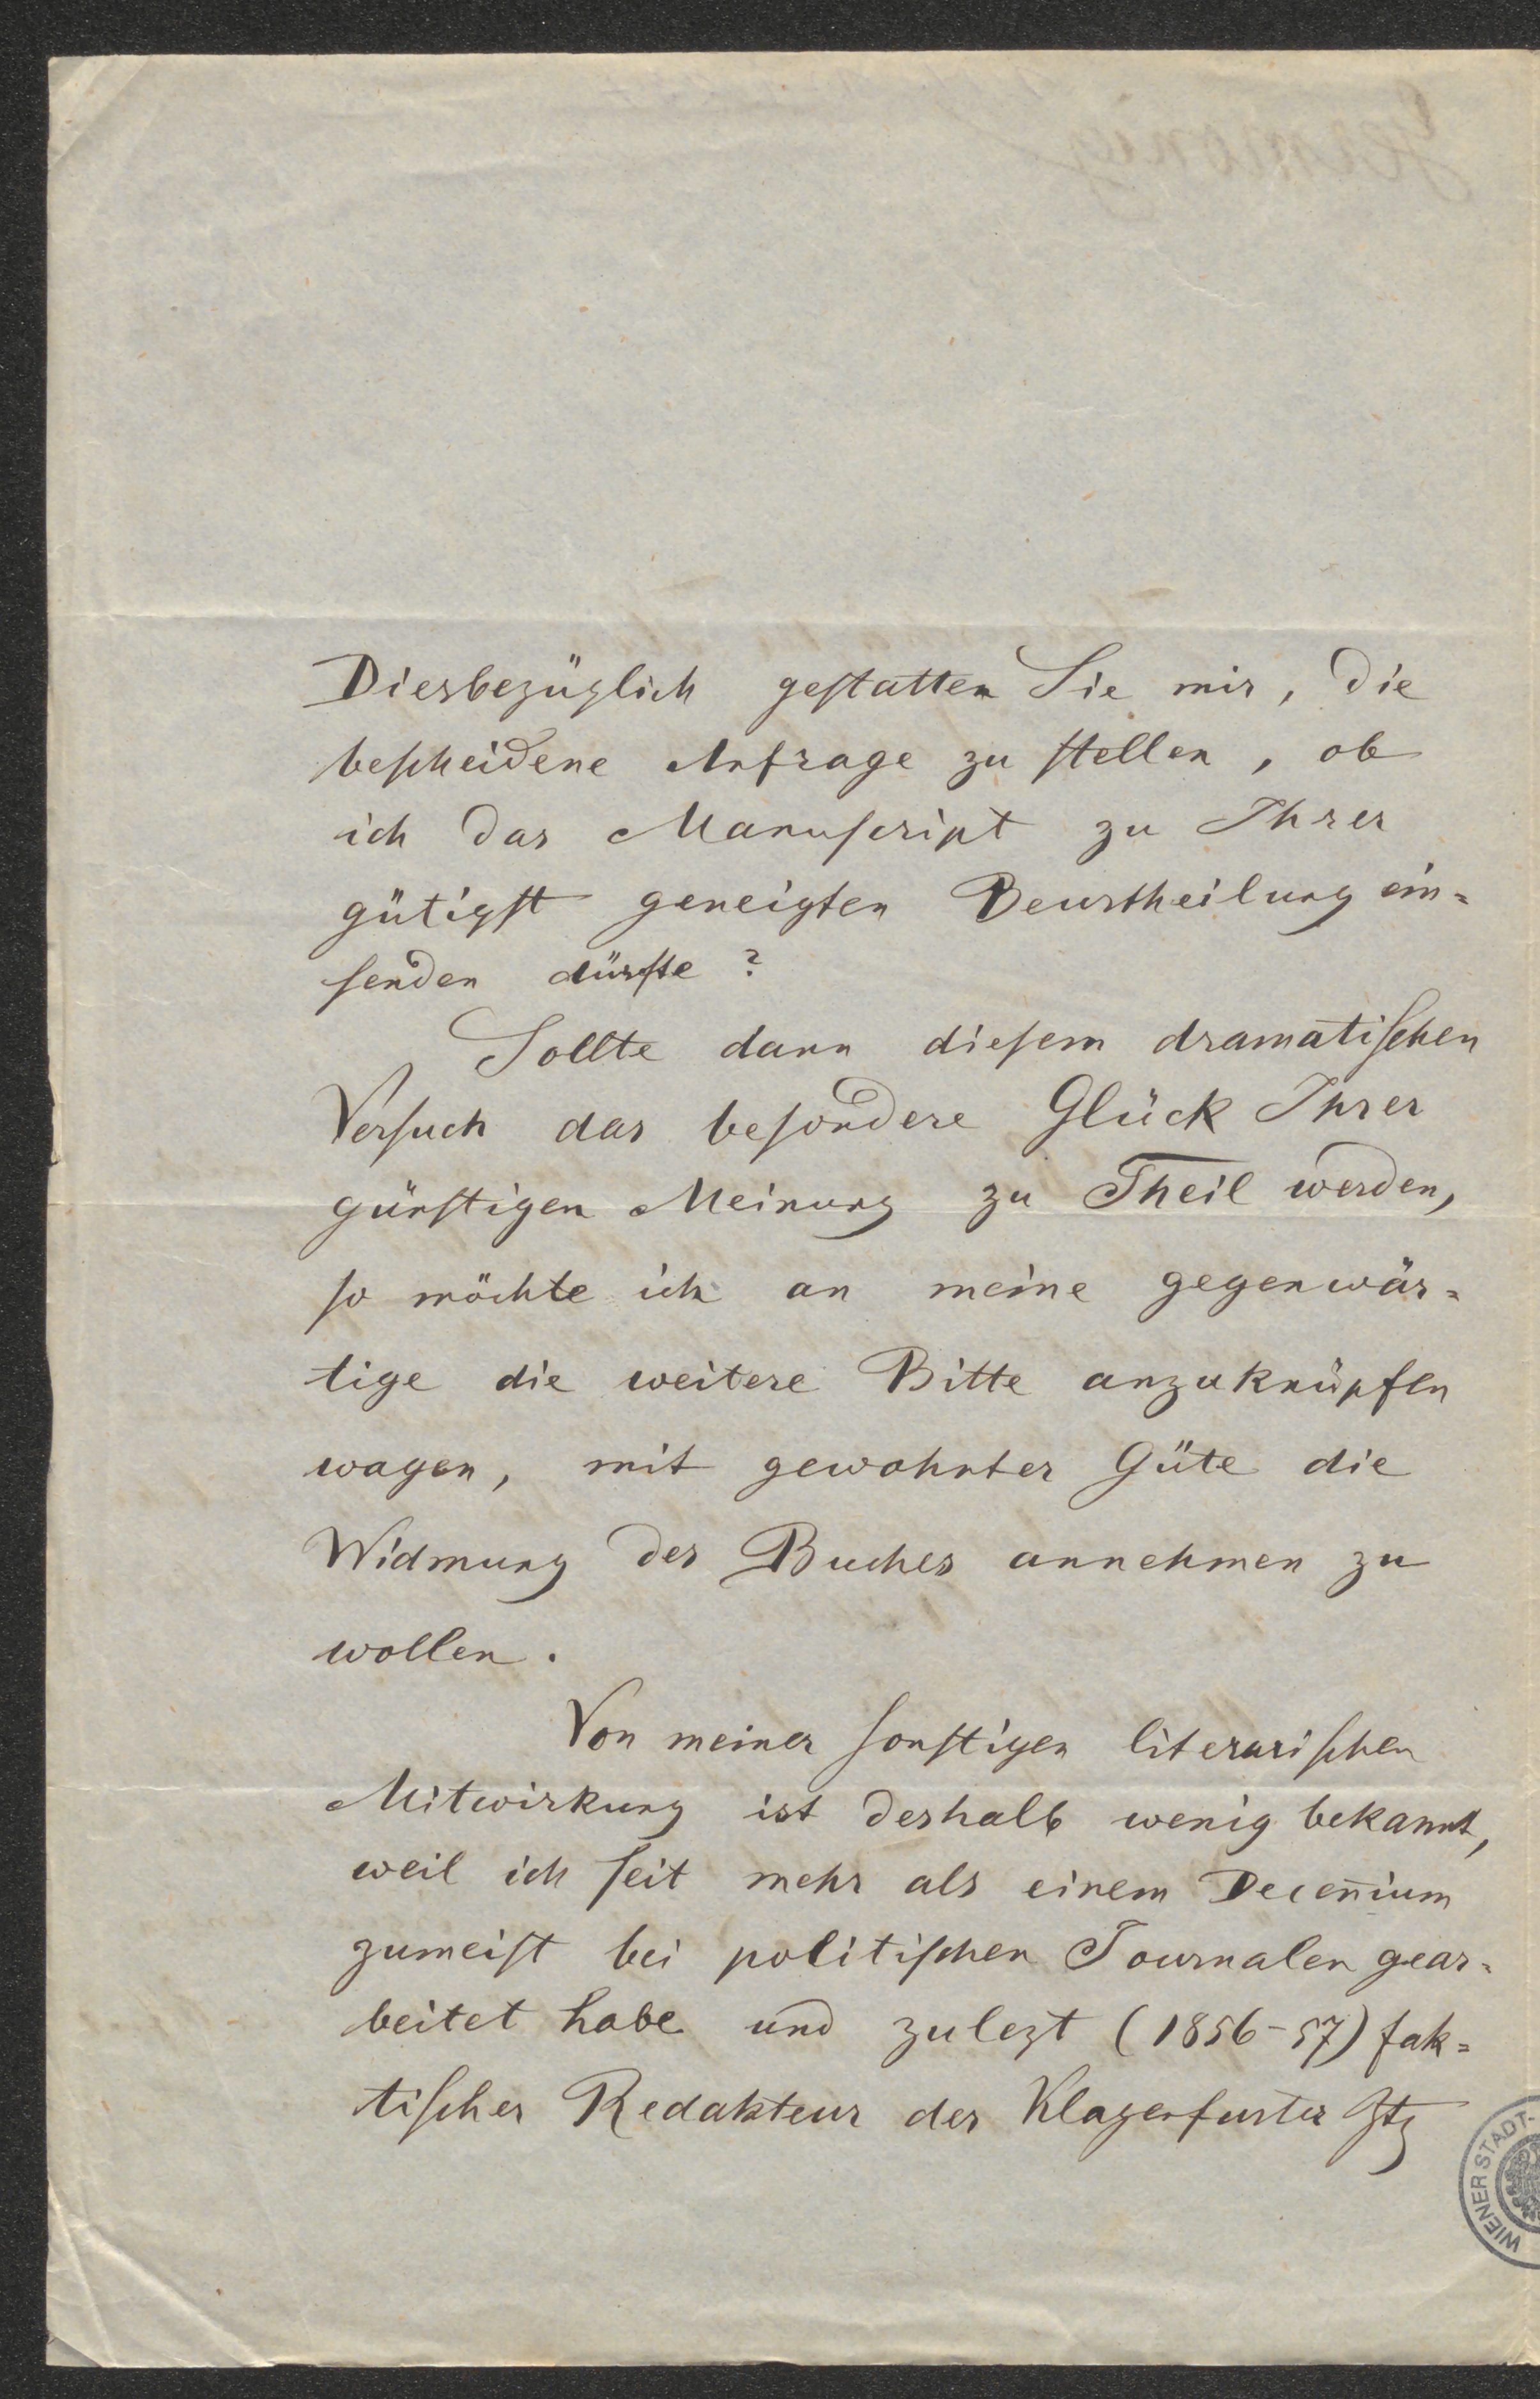 Diesbezüglich gestatten Sie mir, die
bescheidene Anfrage zu stellen, ob
ich das Manuscript zu Ihrer
gütigst geneigten Beurtheilung ein=
senden dürfte?
Sollte dann diesem dramatischen
Versuch das besondere Glück Ihrer
günstigen Meinung zu Theil werden,
so möchte ich an meine gegenwär=
tige die weitere Bitte anzuknüpfen
wagen, mit gewohnter Güte die
Widmung des Buches annehmen zu
wollen.
Von meiner sonstigen literarischen
Mitwirkung ist deshalb wenig bekannt,
weil ich seit mehr als einem Decen̅ium
zumeist bei politischen Journalen gear=
beitet habe und zulezt (1856-57) fak=
tischer Redakteur der Klagenfurter Ztg
WIENER STADT-